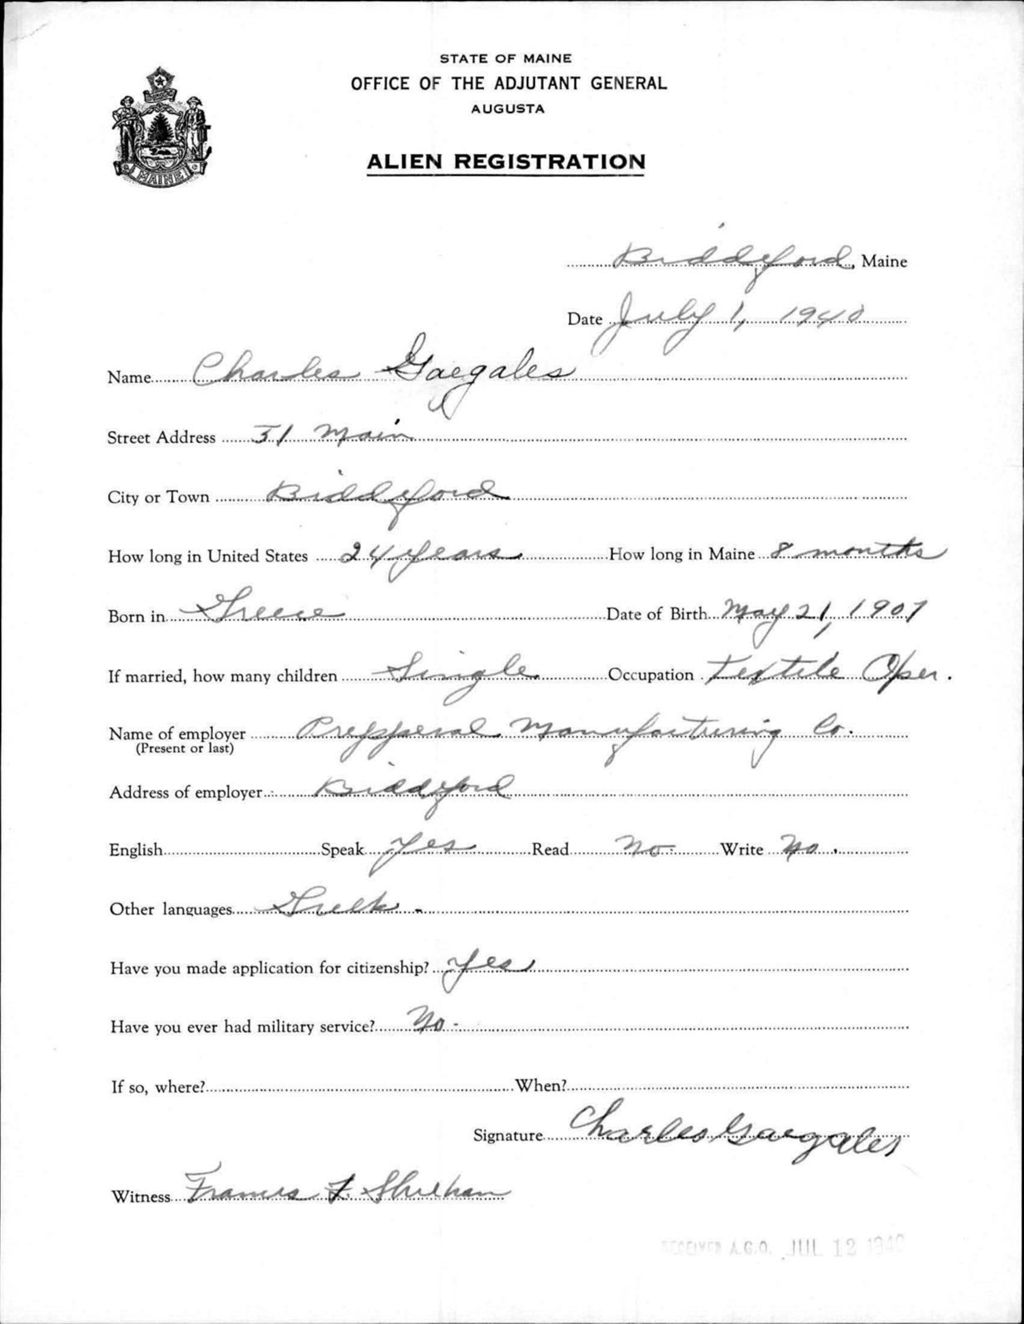 STATE OF MAINE
OFFICE OF THE ADJUTANT GENERAL
AUGUSTA
ALIEN REGISTRATION
MAINE
Biddeford, Maine
Date July 1, 1940
Name Charles Gaegales
Street Address 31 Main
City or Town Biddeford
How long in United States 24 years. How long in Maine 8 months
Born in Greece Date of Birth May 21, 1907
If married, how many children Single. Occupation Textile Oper.
Name of employer Manufacturing Co.
(Present or last)
Address of employer Biddeford
English Speak Yes Read No. Write No.
Other languages Greek -
Have you made application for citizenship? Yes
Have you ever had military service? No -
If so, where? When?
Signature Charles Gaegales
Witness Francis F. Sheehan
RECEIVED A.G.O. JUL 12 1940